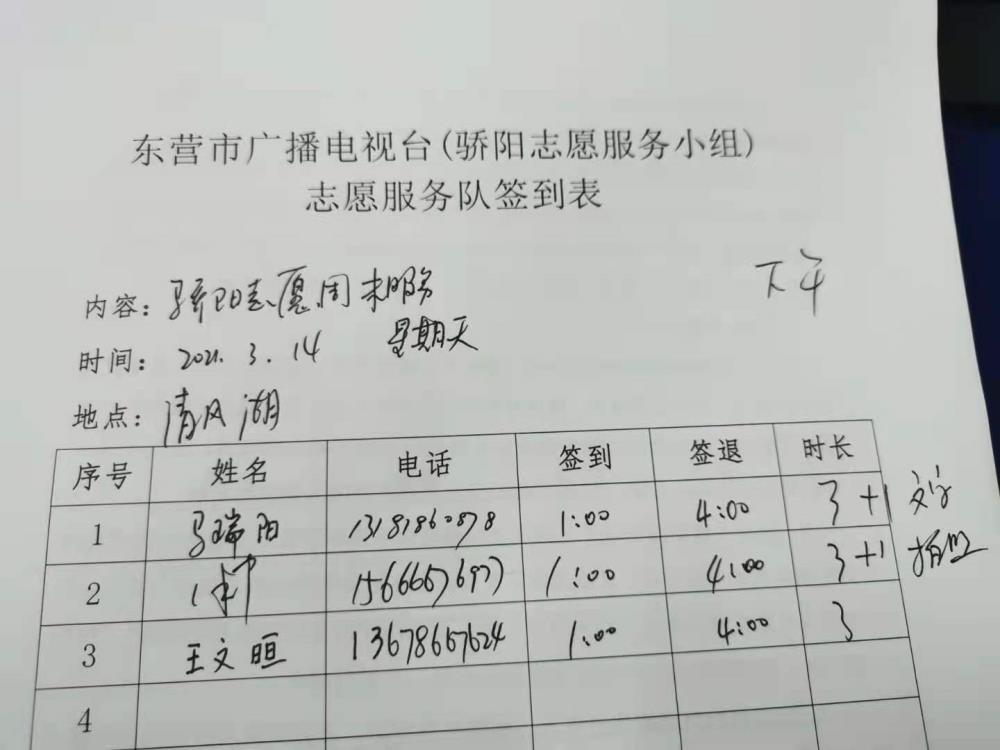 东营市广播电视台(骄阳志愿服务小组)
志愿服务队签到表
下午
内容：骄阳志愿周末服务
时间：2021.3.14 星期天
地点：清风湖
序号 姓名 电话 签到 签退 时长
1 马瑞阳 13181860878 1:00 4:00 3+1 文字
2 1:00 4:00 3+1 拍照
3 王文晅 13678667624 1:00 4:00 3
4